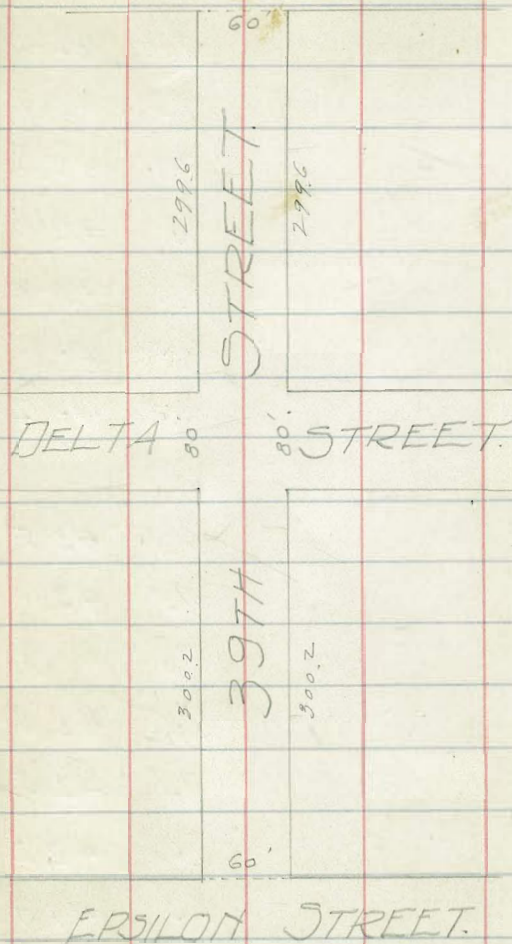 60'
299.6
STREET.
299.6
DELTA 80' 80' STREET.
300.2
39TH
300.2
60'
EPSILON STREET.